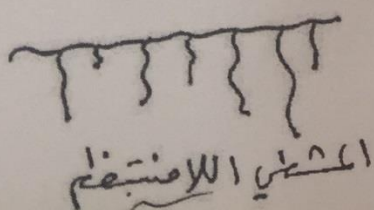 المشطي اللامنتظم